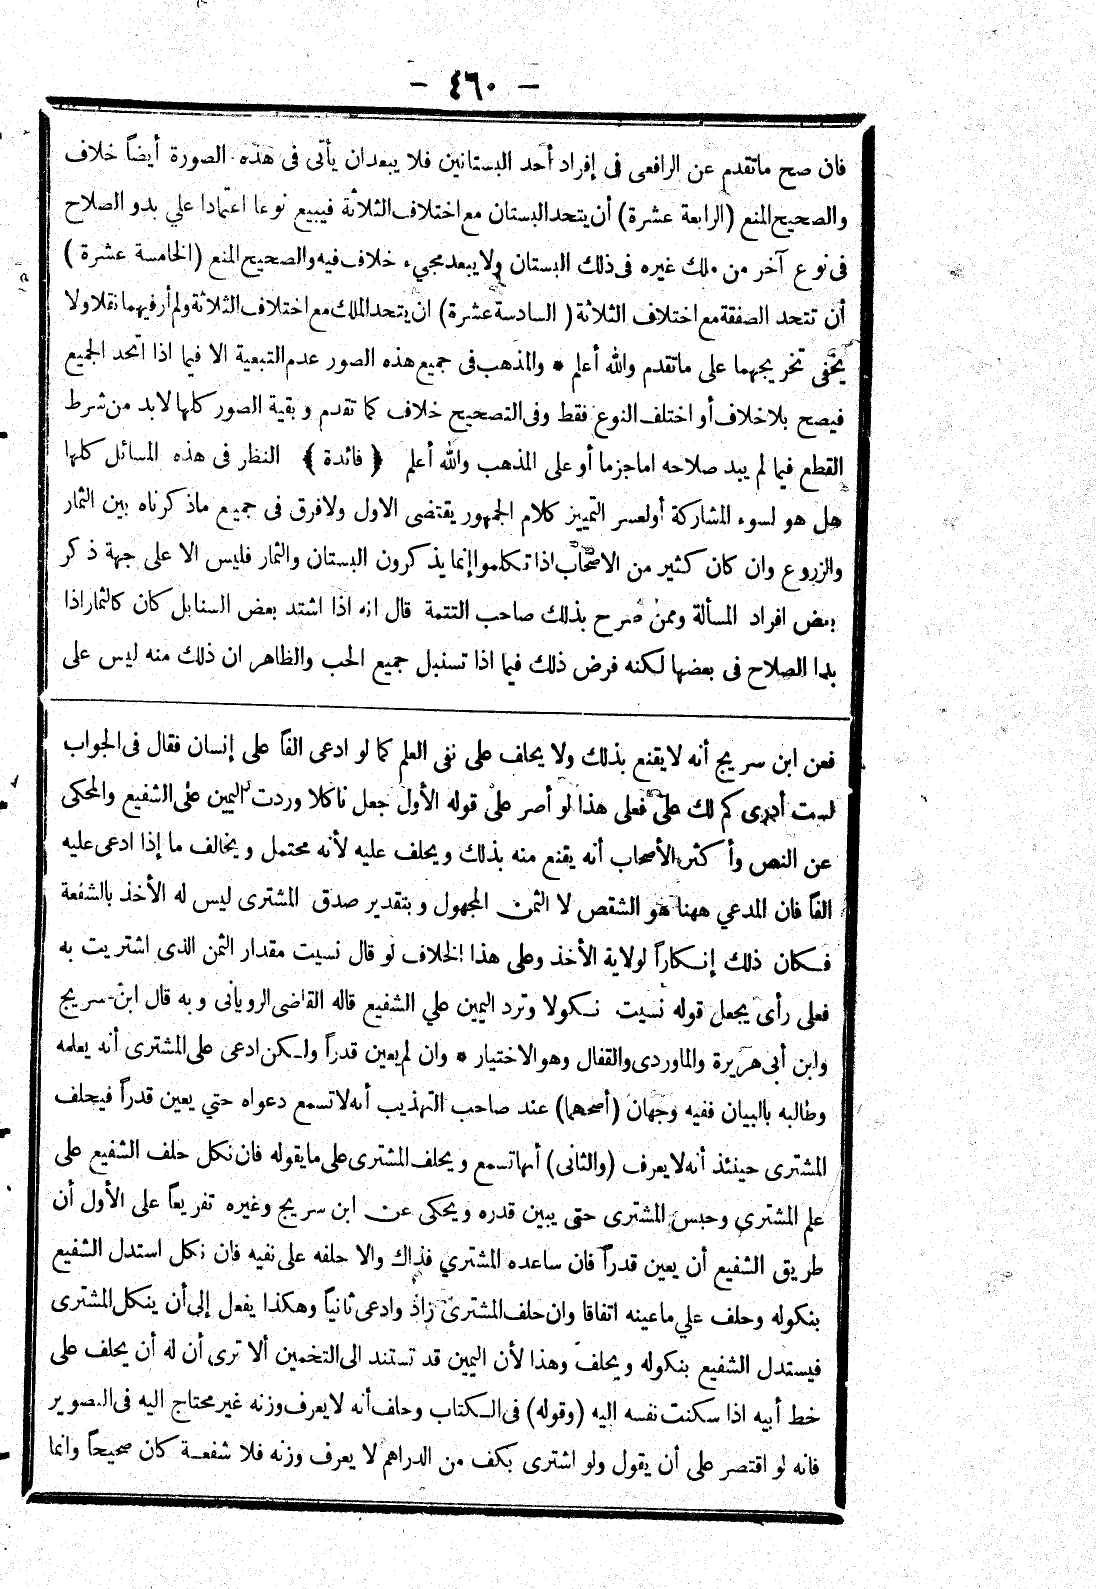 - ٤٦٠ -
فان صح ماتقدم عن الرافعى فى إفراد أحد البستانين فلا يبعد ان يأتى فى هذه الصورة أيضاً خلاف
والصحيح المنع (الرابعة عشرة) أن يتحد البستان مع اختلاف الثلاثة فيبيع نوعا اعتمادا علي بدو الصلاح
فى نوع آخر من ملك غيره فى ذلك البستان ولا يبعد مجيء خلاف فيه والصحيح المنع (الخامسة عشرة)
أن تتحد الصفقة مع اختلاف الثلاثة (السادسة عشرة) ان يتحد الملك مع اختلاف الثلاثة ولم أر فيهما نقلا ولا
يخفى تخريجهما على ماتقدم والله أعلم * والمذهب فى جميع هذه الصور عدم التبعية الا فيما اذا اتحد الجميع
فيصح بلا خلاف أو اختلف النوع فقط وفى التصحيح خلاف كما تقدم وبقية الصور كلها لابد من شرط
القطع فيما لم يبد صلاحه اما جزما أو على المذهب والله أعلم ﴿ فائدة ﴾ النظر فى هذه المسائل كلها
هل هو لسوء المشاركة أولعسر التمييز كلام الجمهور يقتضى الاول ولا فرق فى جميع ماذكرناه بين الثمار
والزروع وان كان كثير من الاصحاب اذا تكلموا إنما يذكرون البستان والثمار فليس الا على جهة ذكر
بعض افراد المسألة وممن صرح بذلك صاحب التتمة قال انه اذا اشتد بعض السنابل كان كالثمار اذا
بدا الصلاح فى بعضها لكنه فرض ذلك فيما اذا تسنبل جميع الحب والظاهر ان ذلك منه ليس على
فعن ابن سريج أنه لا يقنع بذلك ولا يحلف على نفى العلم كما لو ادعى الفاً على إنسان فقال فى الجواب
لست أدرى كم لك علىّ فعلى هذا لو أصر على قوله الأول جعل ناكلا وردت اليمين على الشفيع والمحكى
عن النص وأكثر الأصحاب أنه يقنع منه بذلك ويحلف عليه لأنه محتمل ويخالف ما إذا ادعى عليه
الفاً فان المدعي ههنا هو الشقص لا الثمن المجهول وبتقدير صدق المشترى ليس له الأخذ بالشفعة
فكان ذلك إنكاراً لولاية الأخذ وعلى هذا الخلاف لو قال نسيت مقدار الثمن الذى اشتريت به
فعلى رأى يجعل قوله نسيت نكولا وترد اليمين علي الشفيع قاله القاضى الرويانى وبه قال ابن سريج
وابن أبى هريرة والماوردى والقفال وهو الاختيار * وان لم يعين قدراً ولكن ادعى على المشترى أنه يعلمه
وطالبه بالبيان ففيه وجهان (أصحهما) عند صاحب التهذيب أنه لا تسمع دعواه حتي يعين قدراً فيحلف
المشترى حينئذ أنه لا يعرف (والثانى) أنها تسمع ويحلف المشترى على مايقوله فان نكل حلف الشفيع على
علم المشتري وحبس المشترى حتى يبين قدره ويحكى عن ابن سريج وغيره تفريعاً على الأول أن
طريق الشفيع أن يعين قدراً فان ساعده المشتري فذاك والا حلفه على نفيه فان نكل استدل الشفيع
بنكوله وحلف علي ماعينه اتفاقا وان حلف المشترى زاد وادعى ثانياً وهكذا يفعل إلى أن ينكل المشترى
فيستدل الشفيع بنكوله ويحلف وهذا لأن اليمين قد تستند الى التخمين ألا ترى أن له أن يحلف على
خط أبيه اذا سكنت نفسه إليه (وقوله) فى الكتاب وحلف أنه لا يعرف وزنه غير محتاج اليه فى التصوير
فانه لو اقتصر على أن يقول ولو اشترى بكف من الدراهم لا يعرف وزنه فلا شفعة كان صحيحاً وانما